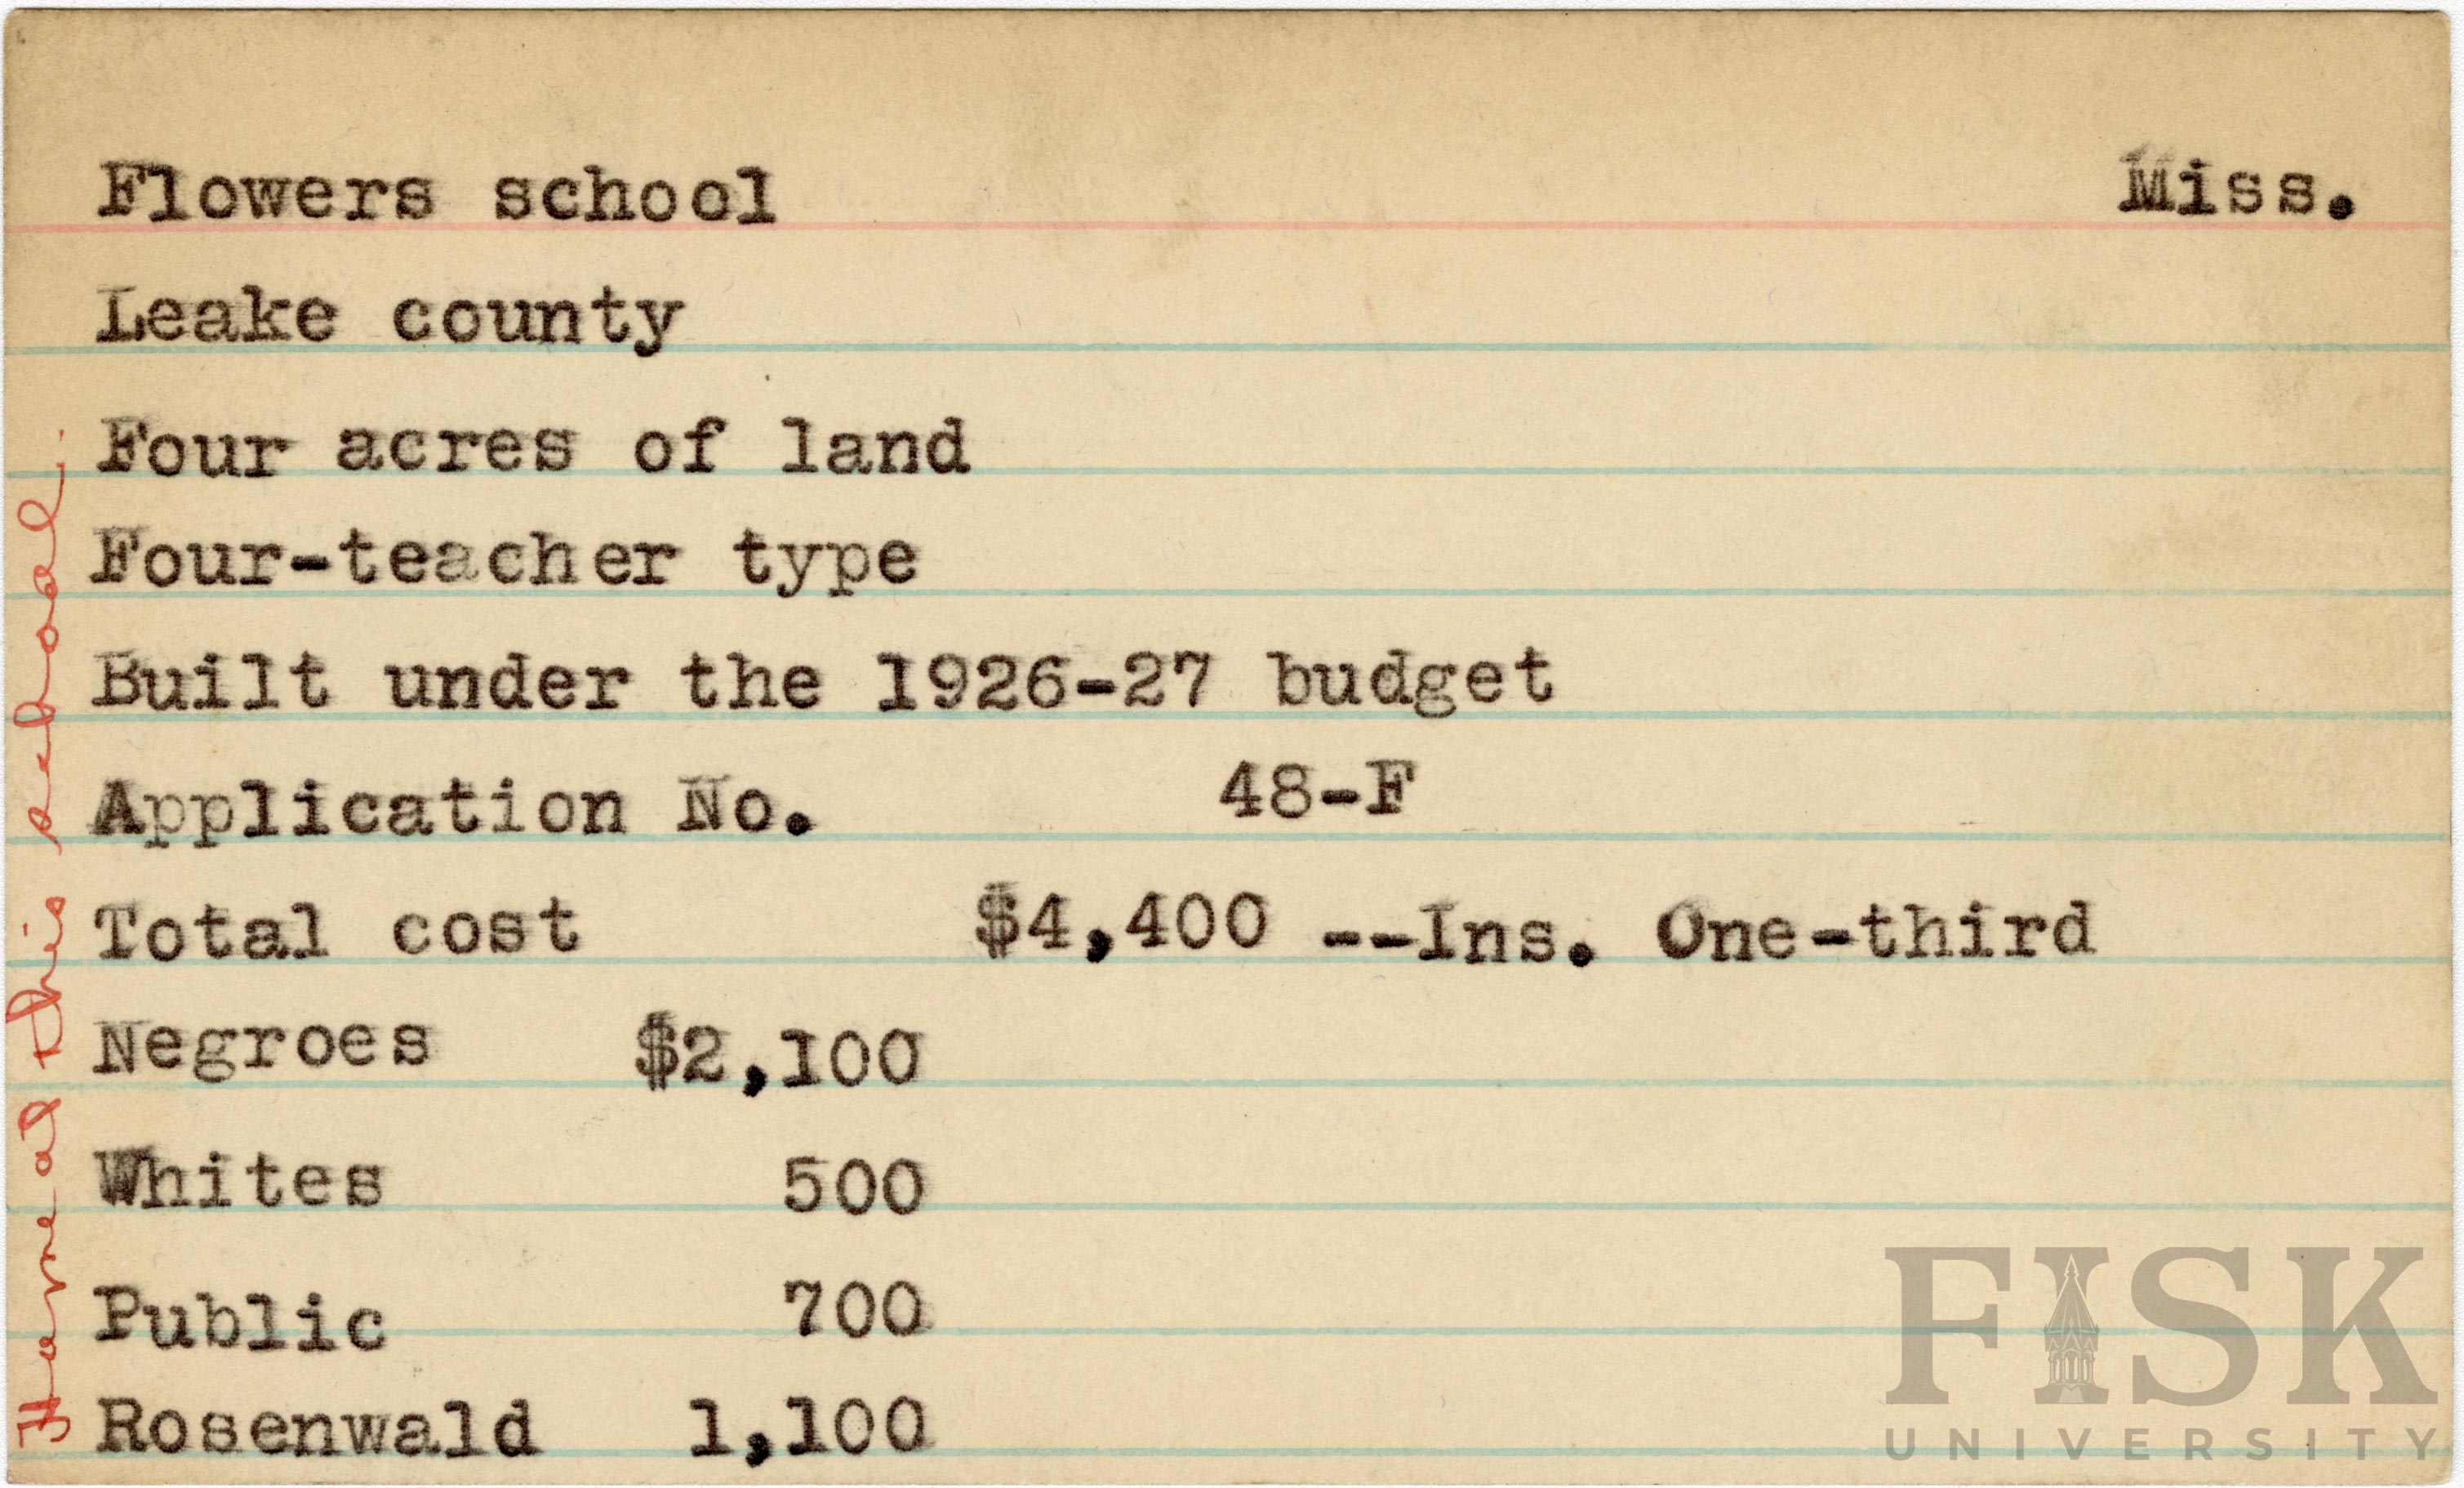 Flowers school Miss.
Leake county
Four acres of land
Four-teacher type
Built under the 1926-27 budget
Application No. 48-F
Total cost $4,400 --Ins. One-third
Negroes $2,100
Whites 500
Public 700
Rosenwald 1,100
Home at this school.
FISK
UNIVERSITY